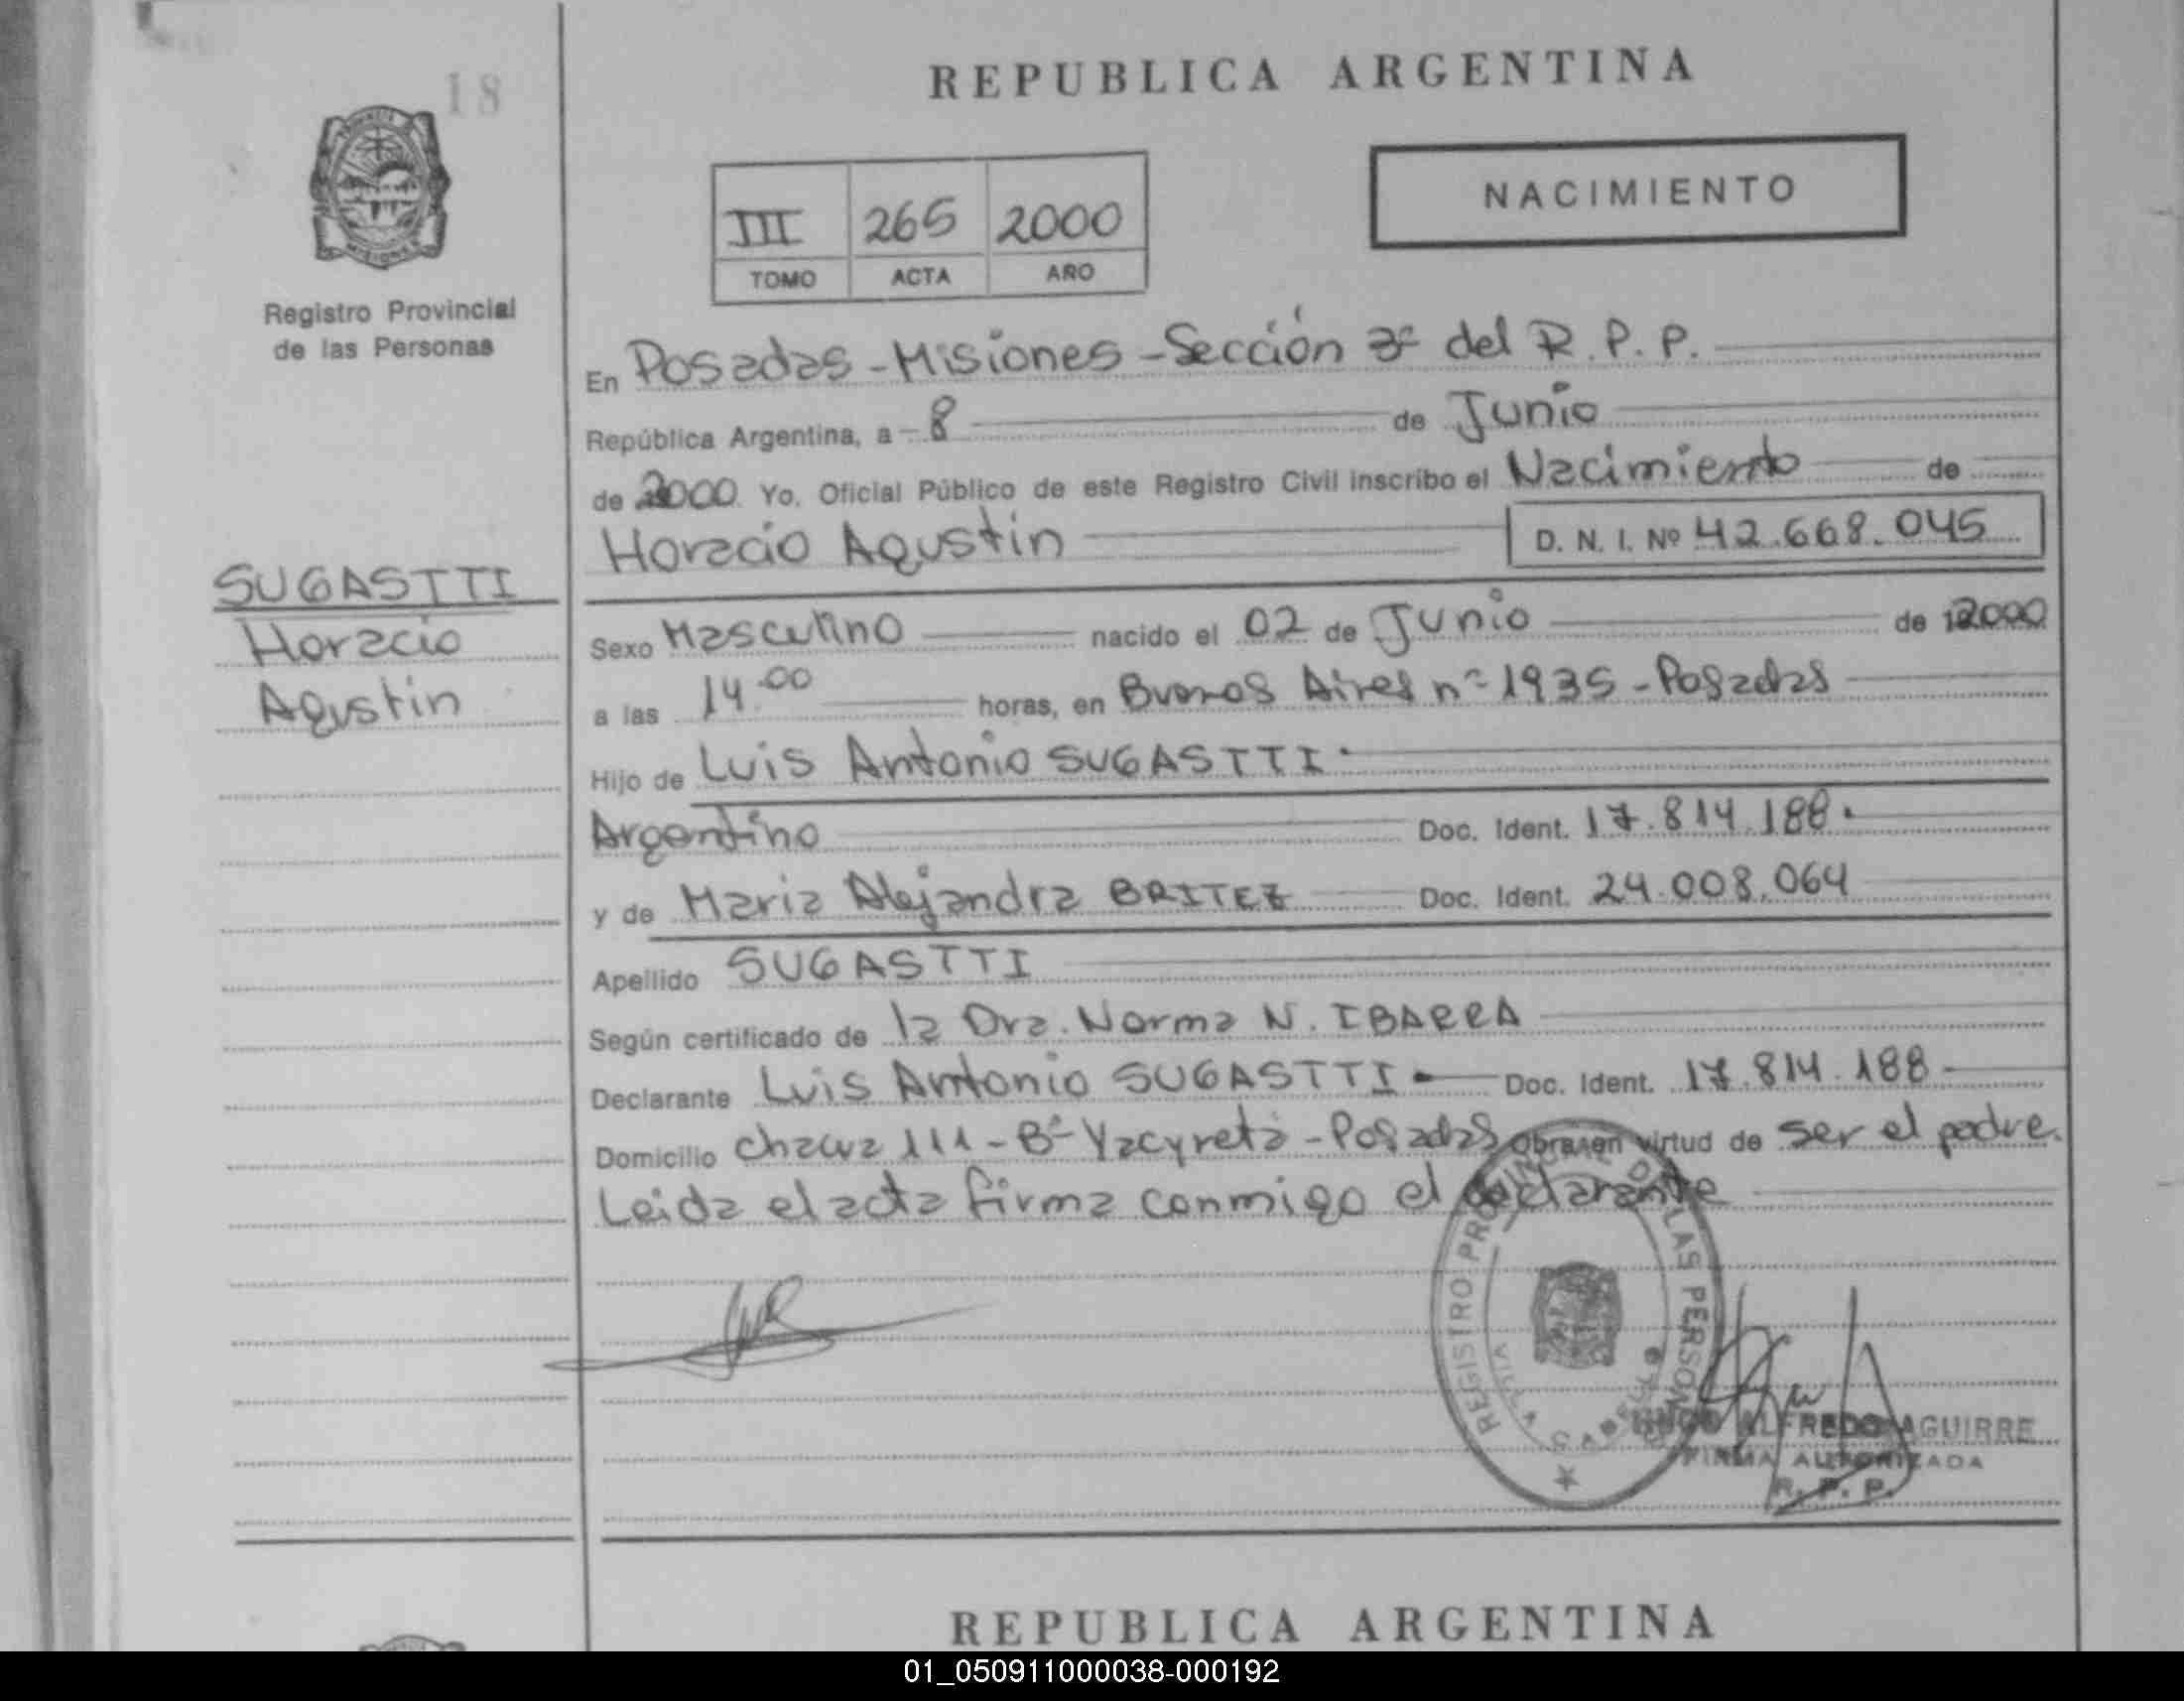 18
REPUBLICA ARGENTINA
NACIMIENTO
III 265 2000
TOMO ACTA AÑO
Registro Provincial
de las Personas
En Posadas - Misiones - Sección 3ª del R. P. P.
República Argentina, a 8 de Junio
de 2000 Yo, Oficial Público de este Registro Civil inscribo el Nacimiento de
Horacio Agustin D. N. I. Nº 42.668.045
SUGASTTI
Horacio
Agustin
Sexo Masculino nacido el 02 de Junio de 2000
a las 14.00 horas, en Buenos Aires nº 1935 - Posadas
Hijo de Luis Antonio SUGASTTI
Argentino Doc. Ident. 17.814.188.
y de Maria Alejandra BRITEZ Doc. Ident. 24.008.064
Apellido SUGASTTI
Según certificado de la Dra. Norma N. IBARRA
Declarante Luis Antonio SUGASTTI Doc. Ident. 17.814.188
Domicilio 111 - Bº Yacyretá - Posadas Obra en virtud de ser el padre.
Leida el acta firma conmigo el declarante
REGISTRO PROVINCIAL DE LAS PERSONAS
ALFREDO AGUIRRE
FIRMA AUTORIZADA
R. P. P.
REPUBLICA ARGENTINA
01_050911000038-000192